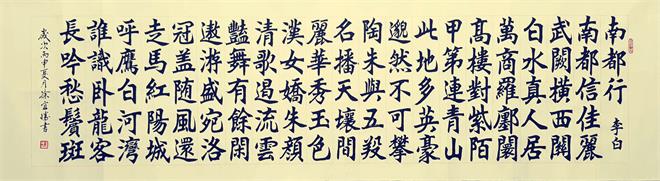 南都行 李白
南都信佳麗
武闕橫西關
白水真人居
萬商羅鄽闤
髙樓對紫陌
甲第連青山
此地多英豪
邈然不可攀
陶朱與五羖
名播天壤間
麗華秀玉色
漢女嬌朱顏
清歌遏流雲
豔舞有餘閑
遨游盛宛洛
冠盖随風還
走馬紅陽城
呼鷹白河灣
誰識卧龍客
長吟愁鬢斑
歲次丙申夏月徐書